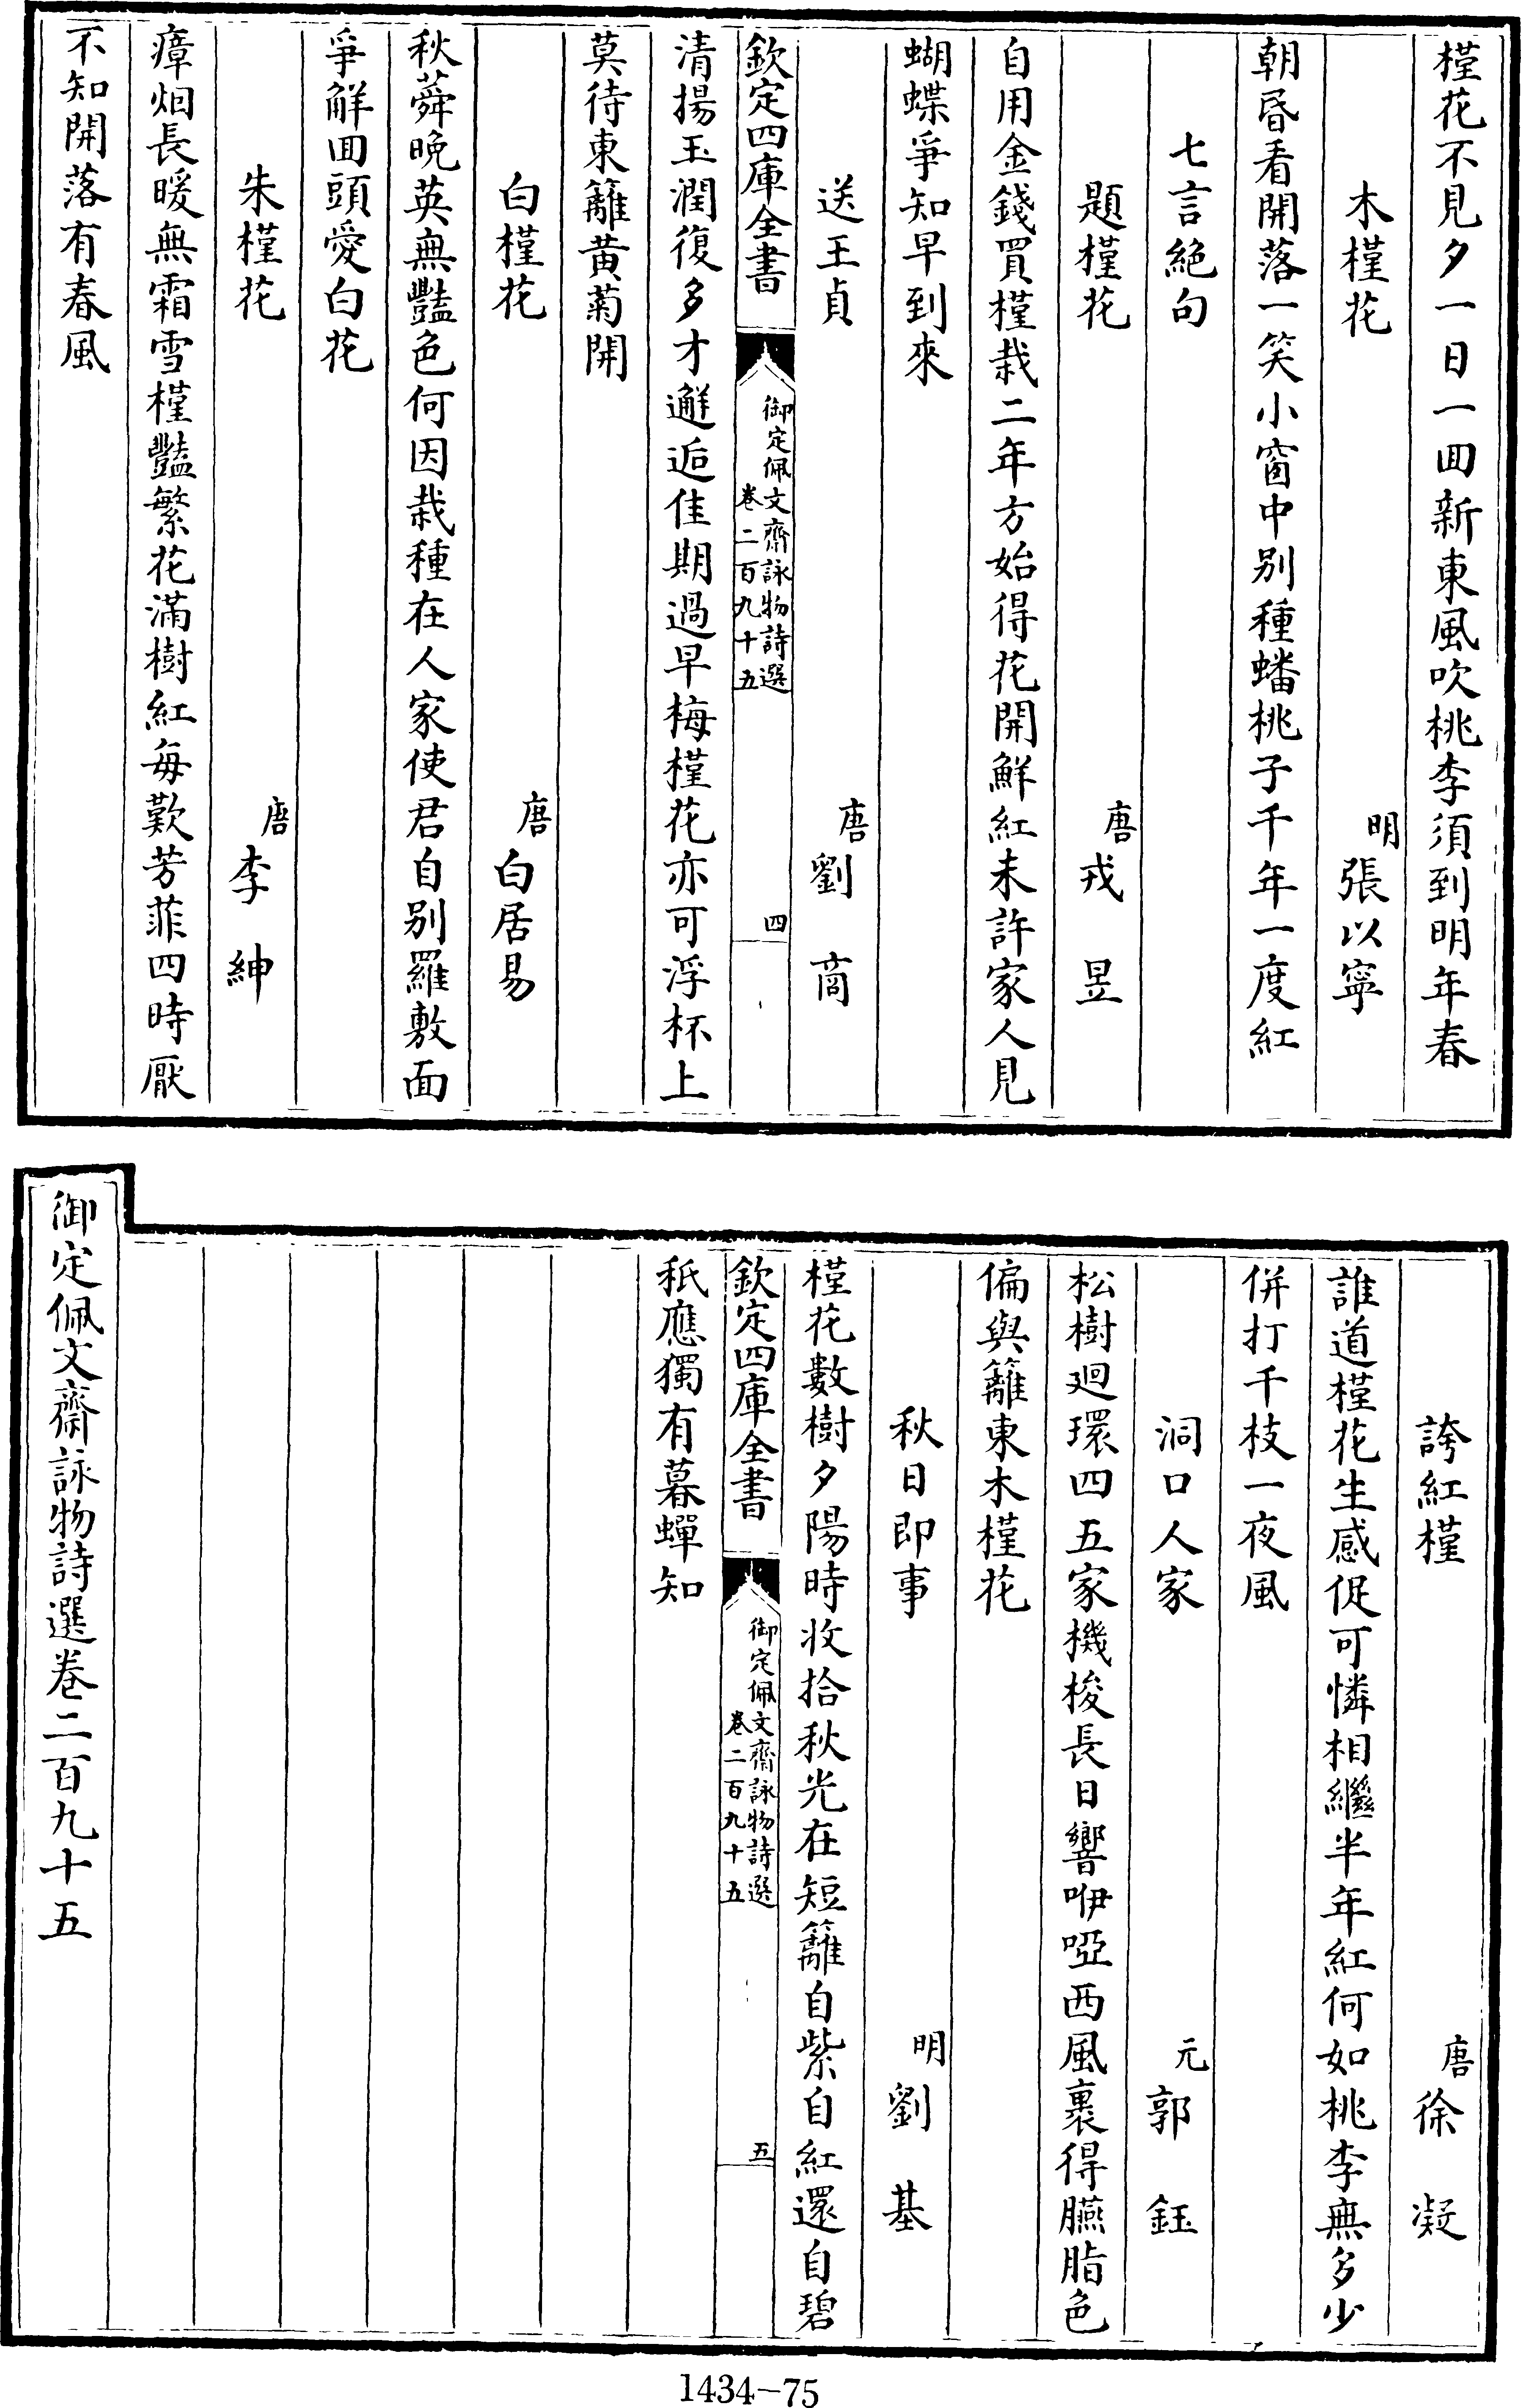 槿花不見夕一日一囬新東風吹桃李須到明年春
木槿花 明 張以寧
朝昏看開落一笑小窗中别種蟠桃子千年一度紅
七言絶句
題槿花 唐 戎昱
自用金錢買槿栽二年方始得花開鮮紅未許家人見
蝴蝶爭知早到來
送王貞 唐 劉商
欽定四庫全書 御定佩文齋詠物詩選 卷二百九十五 四
清揚玉潤復多才邂逅佳期過早梅槿花亦可浮杯上
莫待東籬黄菊開
白槿花 唐 白居易
秋蕣晚英無豔色何因栽種在人家使君自别羅敷面
爭解囬頭愛白花
朱槿花 唐 李紳
瘴烟長暖無霜雪槿豔繁花滿樹紅每歎芳菲四時厭
不知開落有春風
誇紅槿 唐 徐凝
誰道槿花生感促可憐相繼半年紅何如桃李無多少
併打千枝一夜風
洞口人家 元 郭鈺
松樹廻環四五家機梭長日響咿啞西風裹得臙脂色
偏與籬東木槿花
秋日即事 明 劉基
槿花數樹夕陽時收拾秋光在短籬自紫自紅還自碧
欽定四庫全書 御定佩文齋詠物詩選 卷二百九十五 五
秖應獨有暮蟬知
御定佩文齋詠物詩選卷二百九十五
1434-75